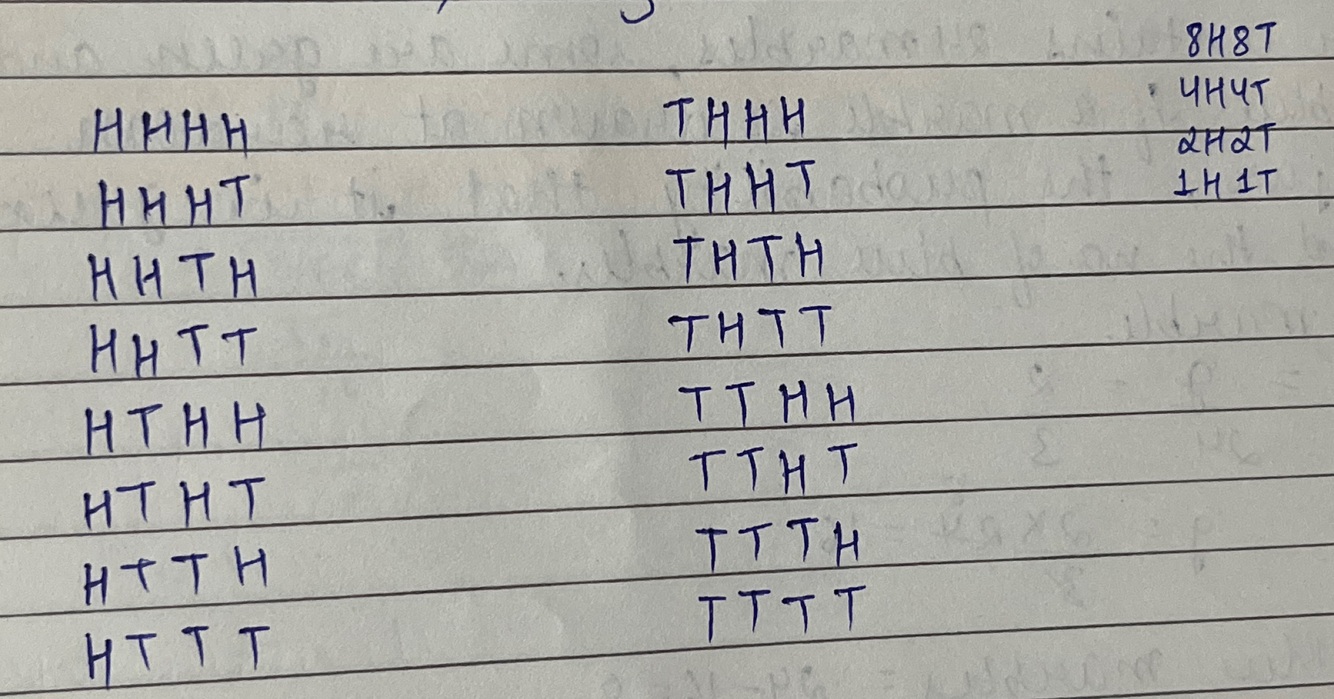 8H8T
4H4T
2H2T
1H1T
HHHH
HHHT
HHTH
HHTT
HTHH
HTHT
HTTH
HTTT
THHH
THHT
THTH
THTT
TTHH
TTHT
TTTH
TTTT